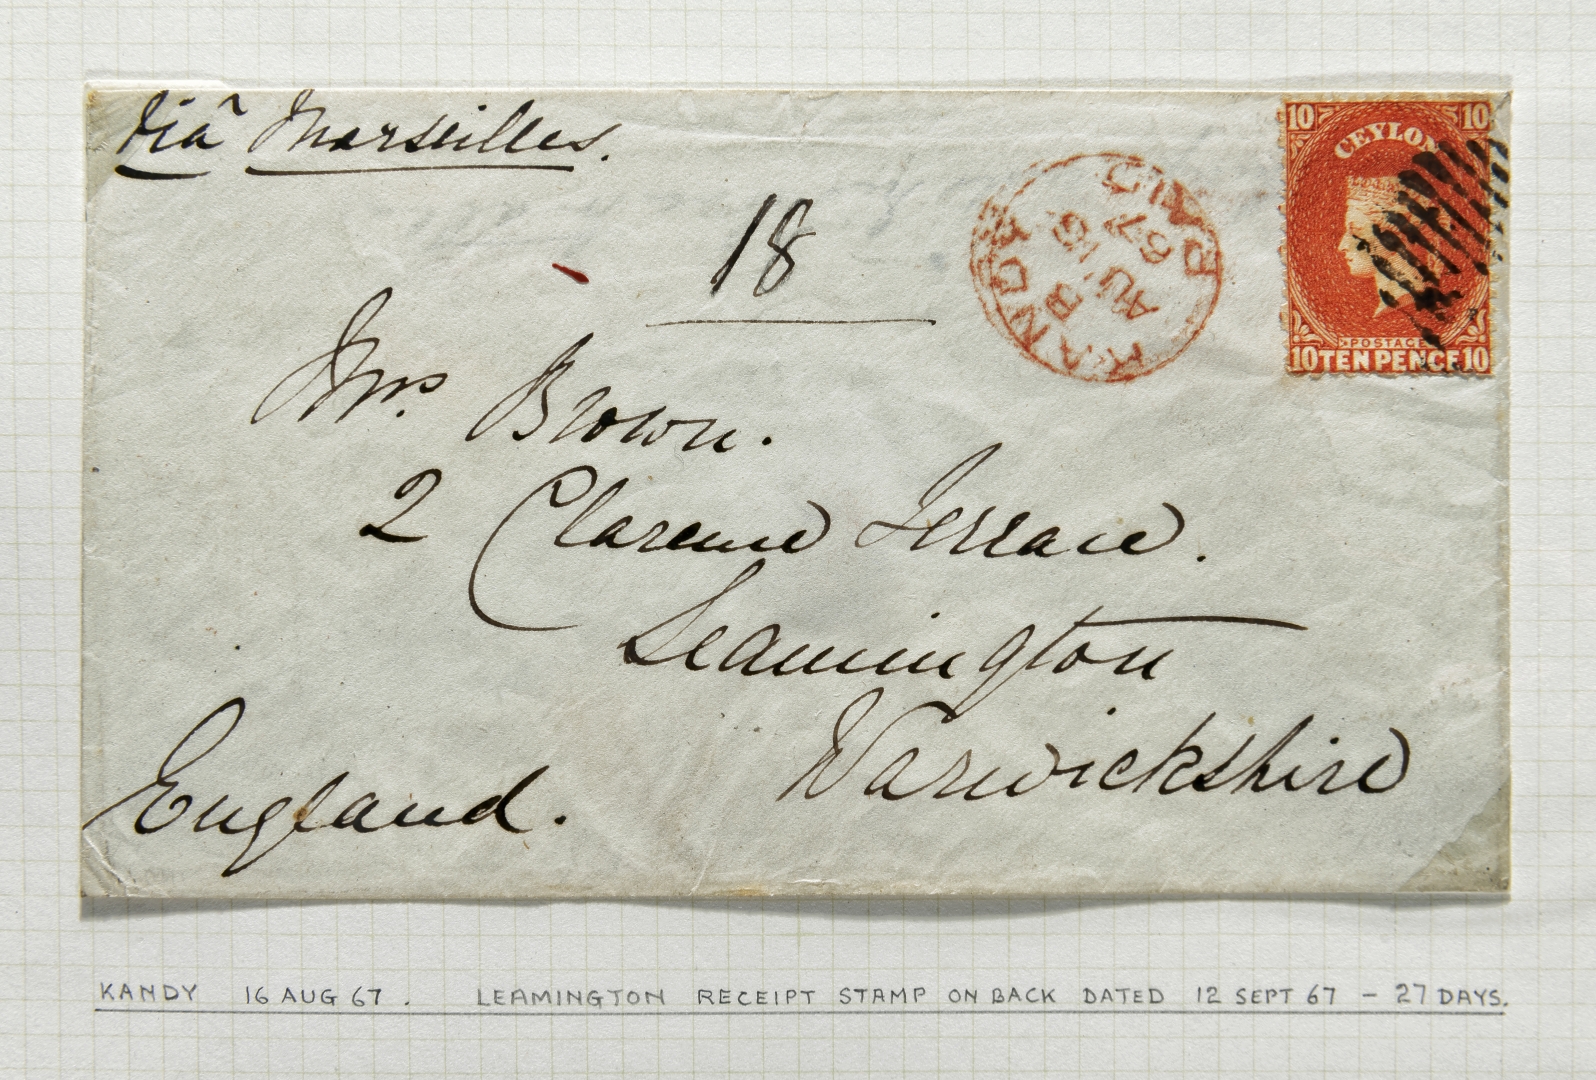 Viâ Marseilles.
18
10 10
CEYLON
POSTAGE
10 TEN PENCE 10
KANDY PAID
B
AU 16
67
Mrs Brown.
2 Clarence Terrace.
Leamington
Warwickshire
England.
KANDY 16 AUG 67. LEAMINGTON RECEIPT STAMP ON BACK DATED 12 SEPT 67 - 27 DAYS.